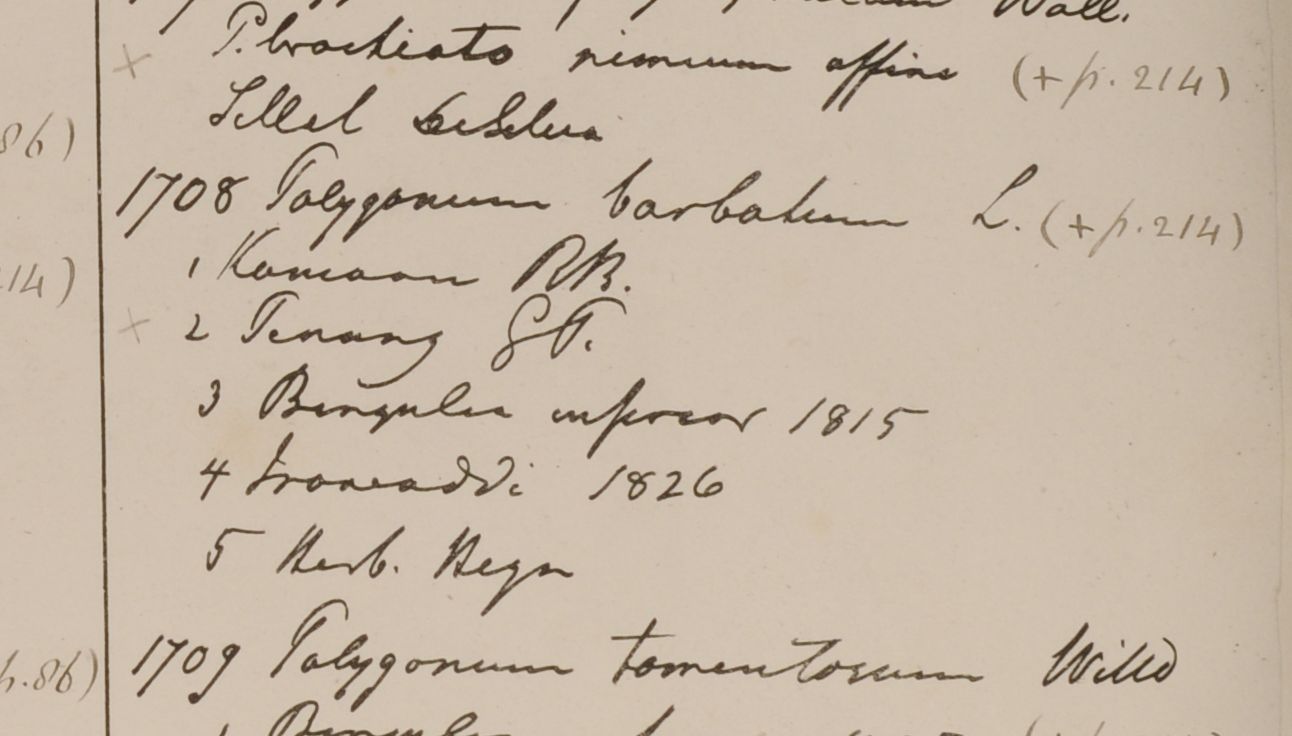 Wall.
P. brachiato nimium affine (+ p. 214)
Sillet
86)
1708 Polygonum barbatum L. (+ p. 214)
1 Kamaon RB.
14)
2 Penang GP.
3 Bengalia inferior 1815
4 Irawaddi 1826
5 Herb. Heyn
1709 Polygonum tomentosum Willd
p. 86)